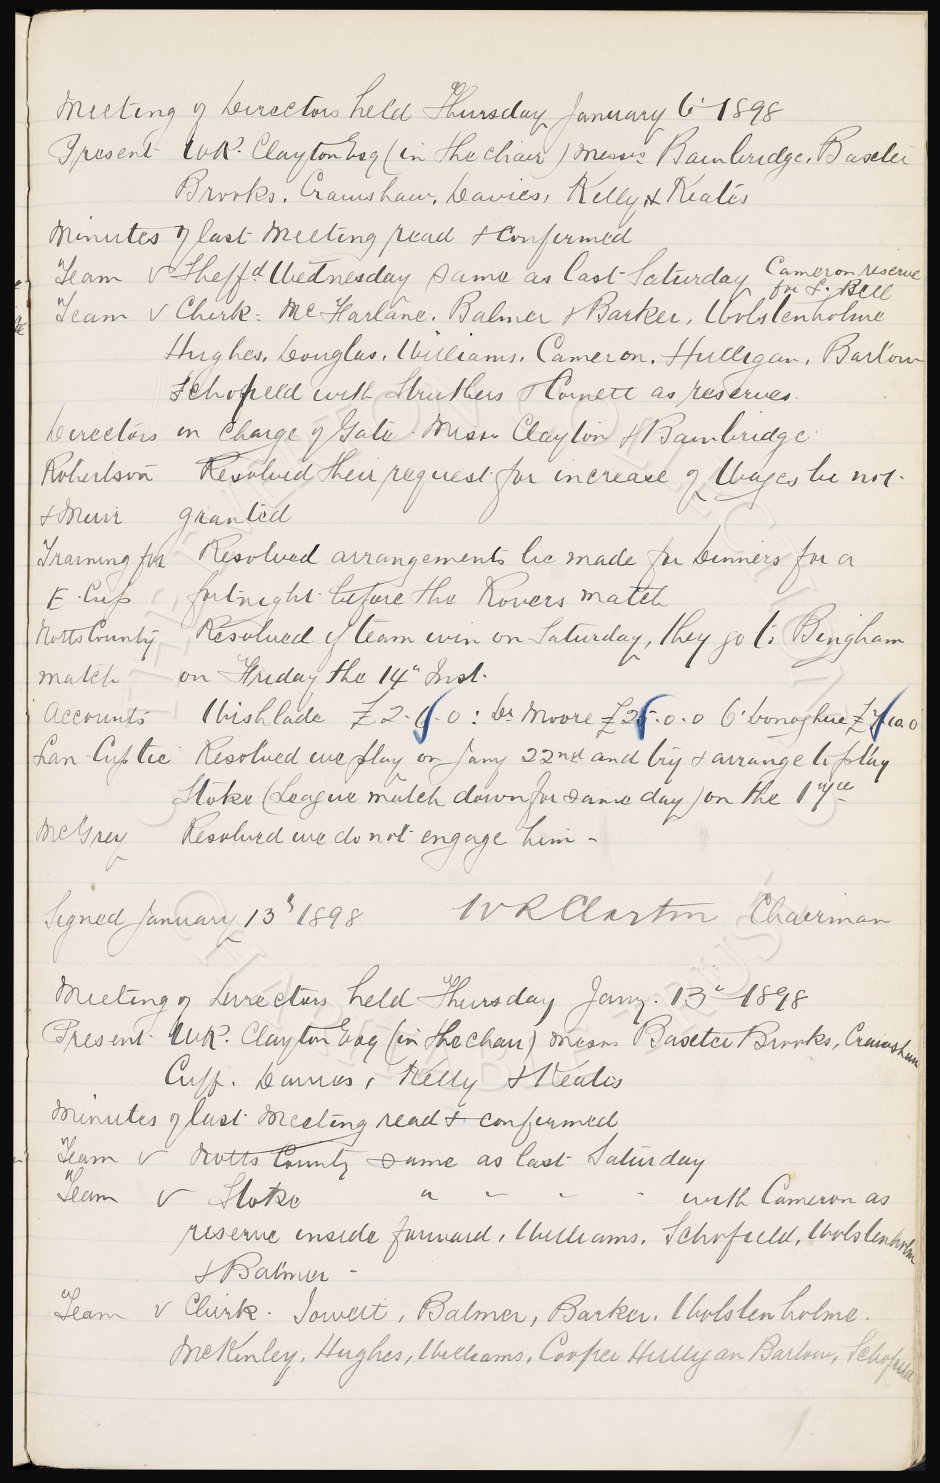 Meeting of Directors held Thursday January 6th 1898
Present W.R. Clayton Esq (in the chair) Messrs Bainbridge, Baxter
Brooks, Crawshaw, Davies, Kelly & Keates
Minutes of last Meeting read & confirmed
Team v Sheffd Wednesday same as last Saturday Cameron reserve
for L. Bell
Team v Chirk: McFarlane, Balmer & Barker, Wolstenholme
Hughes, Douglas, Williams, Cameron, Hulligan, Barlow
Schofield with Struthers & Cornett as reserves.
Directors in Charge of Gate Messrs Clayton & Bainbridge
Robertson Resolved their request for increase of Wages be not
& Muir granted
Training for Resolved arrangements be made for Dinners for a
E. Cup fortnight before the Rovers match
Notts County Resolved if team win on Saturday, they go to Bingham
match on Friday the 14th Inst.
Accounts Wishlade £2. . 0 : Dr Moore £25.0.0 O'Donoghue
Lan Cup tie Resolved we play on Jany 22nd and try & arrange to play
Stoke (League match down for same day) on the
McGrey Resolved we do not engage him -
Signed January 13th 1898 WR Clayton Chairman
Meeting of Directors held Thursday Jany. 13th 1898
Present W.R. Clayton Esq (in the chair) Messrs Baxter Brooks, Crawshaw
Cuff, Davies, Kelly & Keates
Minutes of last Meeting read & confirmed
Team v Notts County same as last Saturday
Team v Stoke " " " " with Cameron as
reserve inside forward, Williams, Schofield, Wolstenholme
& Balmer -
Team v Chirk. Jowett, Balmer, Barker, Wolstenholme.
McKinley, Hughes, Williams, Cooper Hulligan Barlow, Schofield